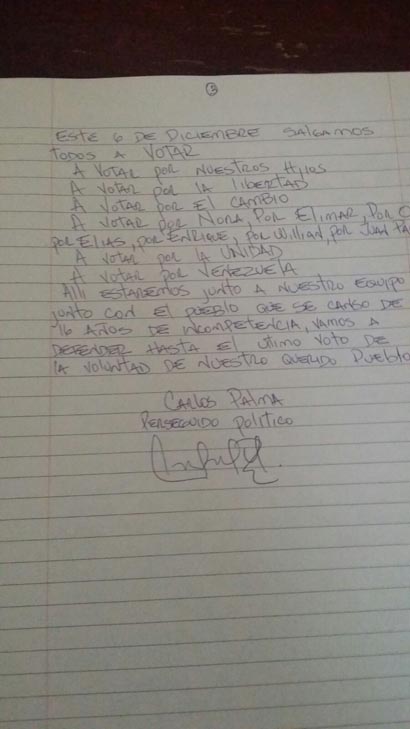 3
ESTE 6 DE DICIEMBRE SALGAMOS
TODOS A VOTAR
A VOTAR POR NUESTROS HIJOS
A VOTAR POR LA LIBERTAD
A VOTAR POR EL CAMBIO
A VOTAR POR NORA, POR ELIMAR, POR
POR ELIAS, POR ENRIQUE, POR WILLIAN, POR JUAN
A VOTAR POR LA UNIDAD
A VOTAR POR VENEZUELA
ALLI ESTAREMOS JUNTO A NUESTRO EQUIPO
JUNTO CON EL PUEBLO QUE SE CANSO DE
16 AÑOS DE INCOMPETENCIA, VAMOS A
DEFENDER HASTA EL ULTIMO VOTO DE
LA VOLUNTAD DE NUESTRO QUERIDO PUEBLO
CARLOS PALMA
PERSEGUIDO POLITICO